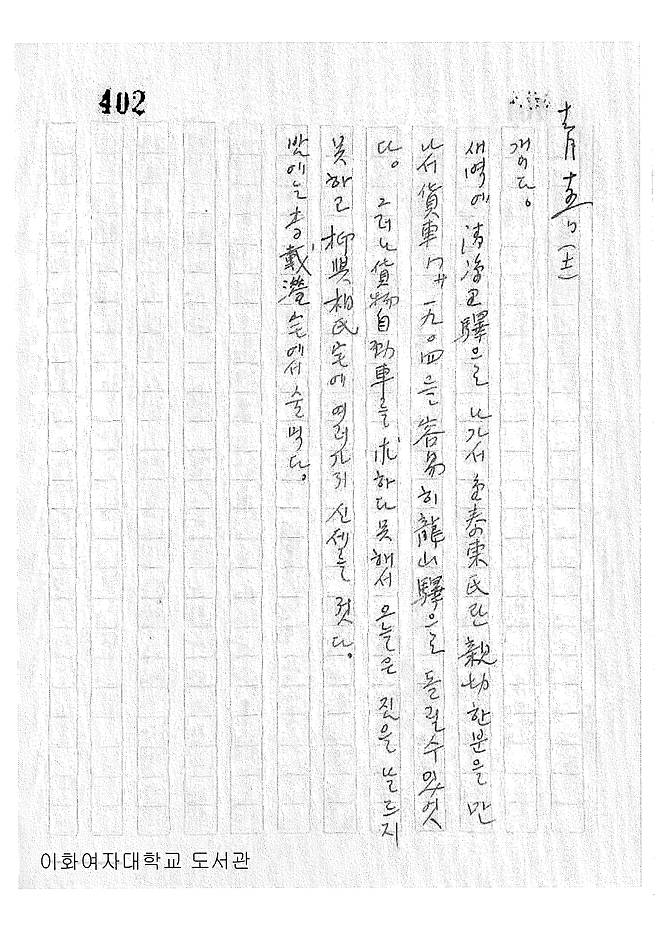 402
十月十三日 (土)
갬。
새벽에 淸凉里驛으로 나가서 金泰東氏란 親切한분을 만
나서 貨車 一九〇四을 容易히 龍山驛으로 돌릴수있엇
다。 그러나 貨物自動車를 求하다못해서 오늘은 짐을 날르지
못하고 柳興相氏宅에 여러가지 신세를 젓다。
밤에는 李戴瀅宅에서 술먹다。
이화여자대학교 도서관